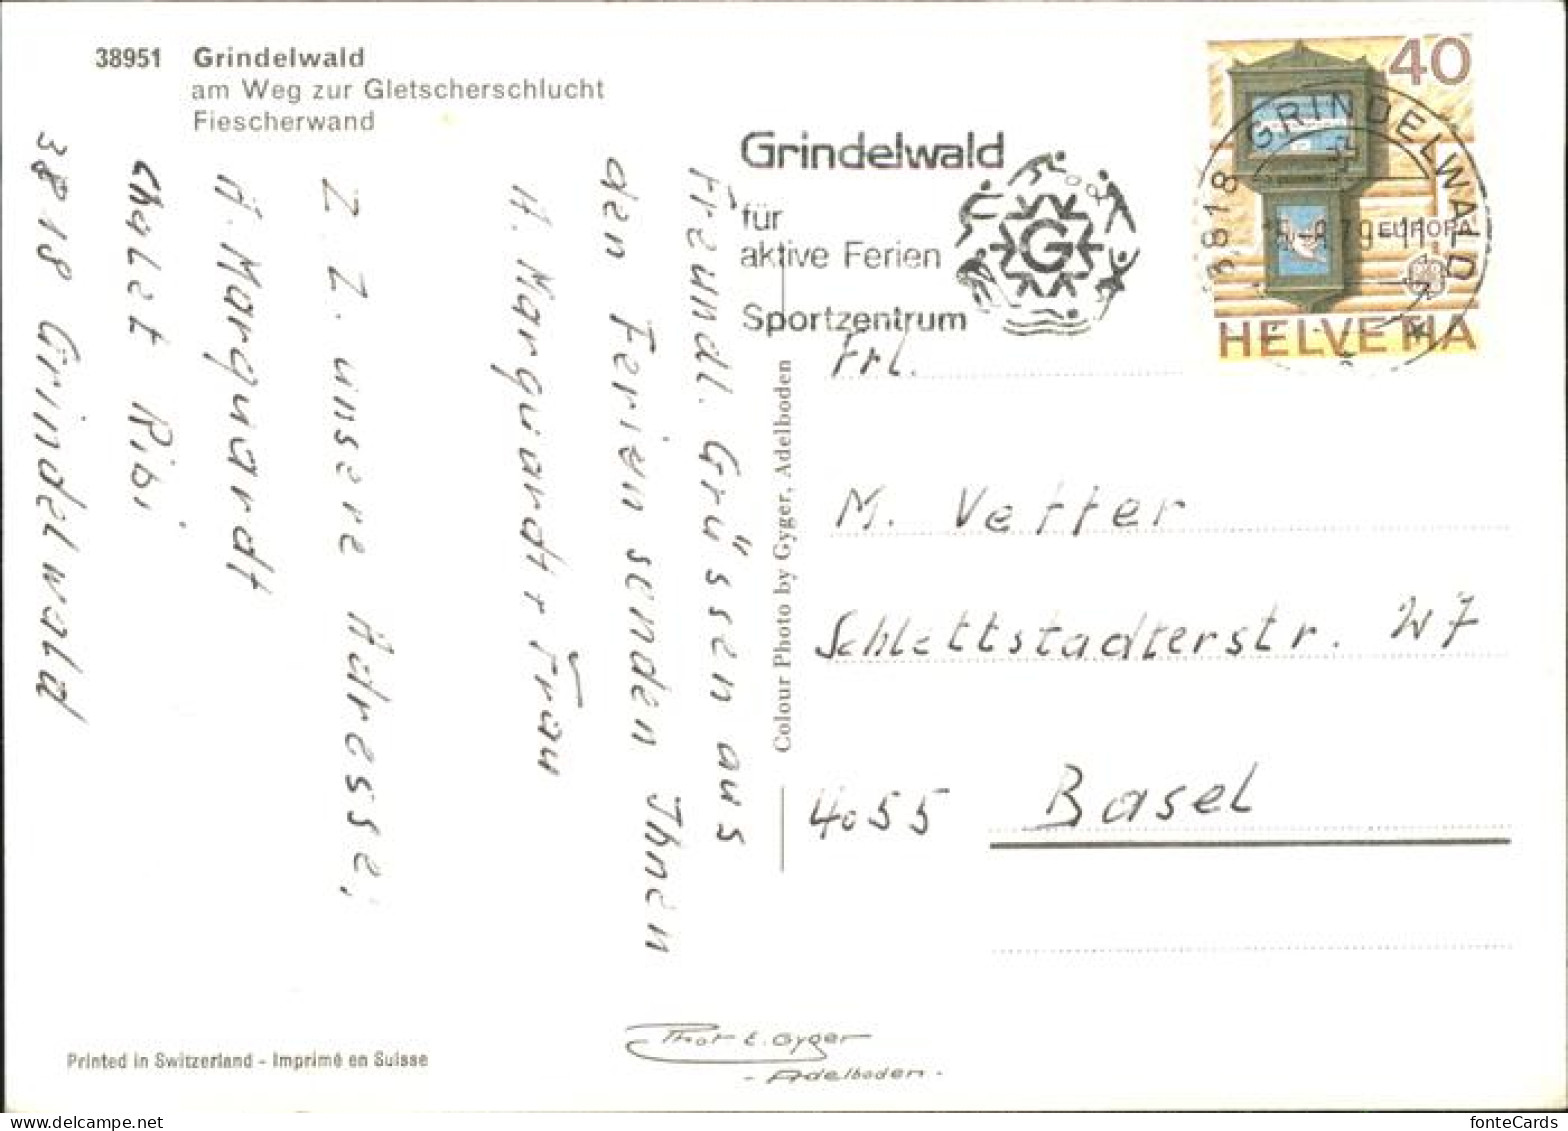 38951 Grindelwald
am Weg zur Gletscherschlucht
Fiescherwand
Grindelwald
für
aktive Ferien
Sportzentrum
G
40
EUROPA
HELVETIA
3818 GRINDELWALD
79-11
Freundl. Grüssen aus
den Ferien senden Ihnen
H. Marquardt + Frau
Z. Z. unsere Adresse:
H. Marquardt
Chalet Ribi
3818 Grindelwald
Colour Photo by Gyger, Adelboden
Frl.
M. Vetter
Schlettstadterstr. 27
4055 Basel
Printed in Switzerland - Imprimé en Suisse
Phot E. Gyger
- Adelboden -
fonteCards